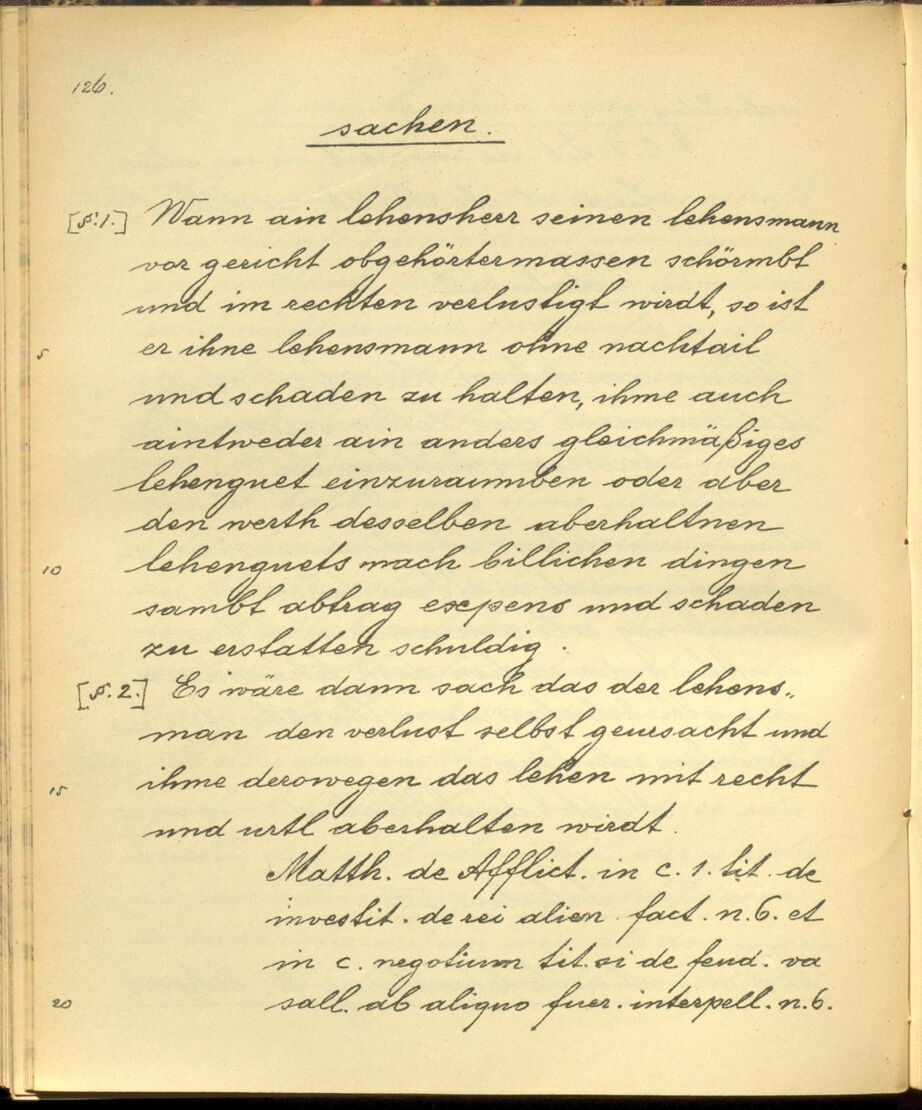 126.
sachen.
[§. 1.] Wann ain lehensherr seinen lehensmann
vor gericht obgehörtermassen schörmbt
und im rechten verlustigt wirdt, so ist
5 er ihne lehensmann ohne nachtail
und schaden zu halten, ihme auch
aintweder ain anders gleichmäßiges
lehenguet einzuraumben oder aber
den werth desselben aberhaltnen
10 lehenguets nach billichen dingen
sambt abtrag expens und schaden
zu erstatten schuldig.
[§. 2.] Es wäre dann sach das der lehens„
man den verlust selbst geursacht und
15 ihme derowegen das lehen mit recht
und urtl aberhalten wirdt.
Matth. de Afflict. in c. 1. tit. de
investit. de rei alien. fact. n. 6. et
in c. negotium tit. si de feud. va
20 sall. ab aliquo fuer. interpell. n. 6.